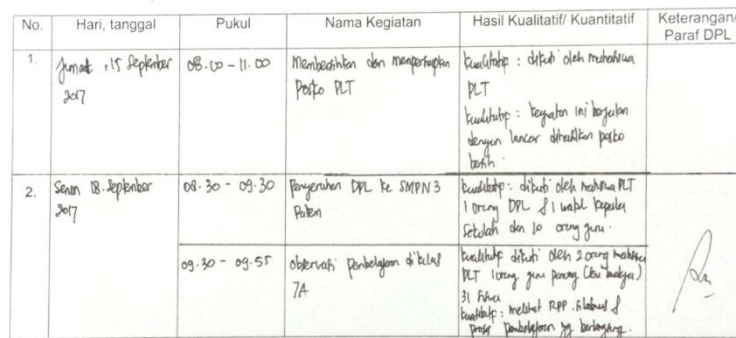 No. Hari, tanggal Pukul Nama Kegiatan Hasil Kualitatif/ Kuantitatif Keterangan/
Paraf DPL
1. Jumat, 15 September 08.00 - 11.00 Membersihkan dan mempersiapkan : diikuti oleh mahasiswa
2017 Posko PLT PLT
: kegiatan ini berjalan
dengan lancar dihasilkan posko
bersih.
2. Senin 18. September 08.30 - 09.30 Penyerahan DPL ke SMPN 3 : diikuti oleh mahasiswa PLT
2017 Pakem 1 orang DPL & 1 wakil kepala
Sekolah dan 10 orang guru.
09.30 - 09.55 observasi pembelajaran di kelas diikuti oleh 2 orang mahasiswa
7A PLT 1 orang guru
31 siswa
: melihat RPP. silabus &
proses pembelajaran yg berlangsung.